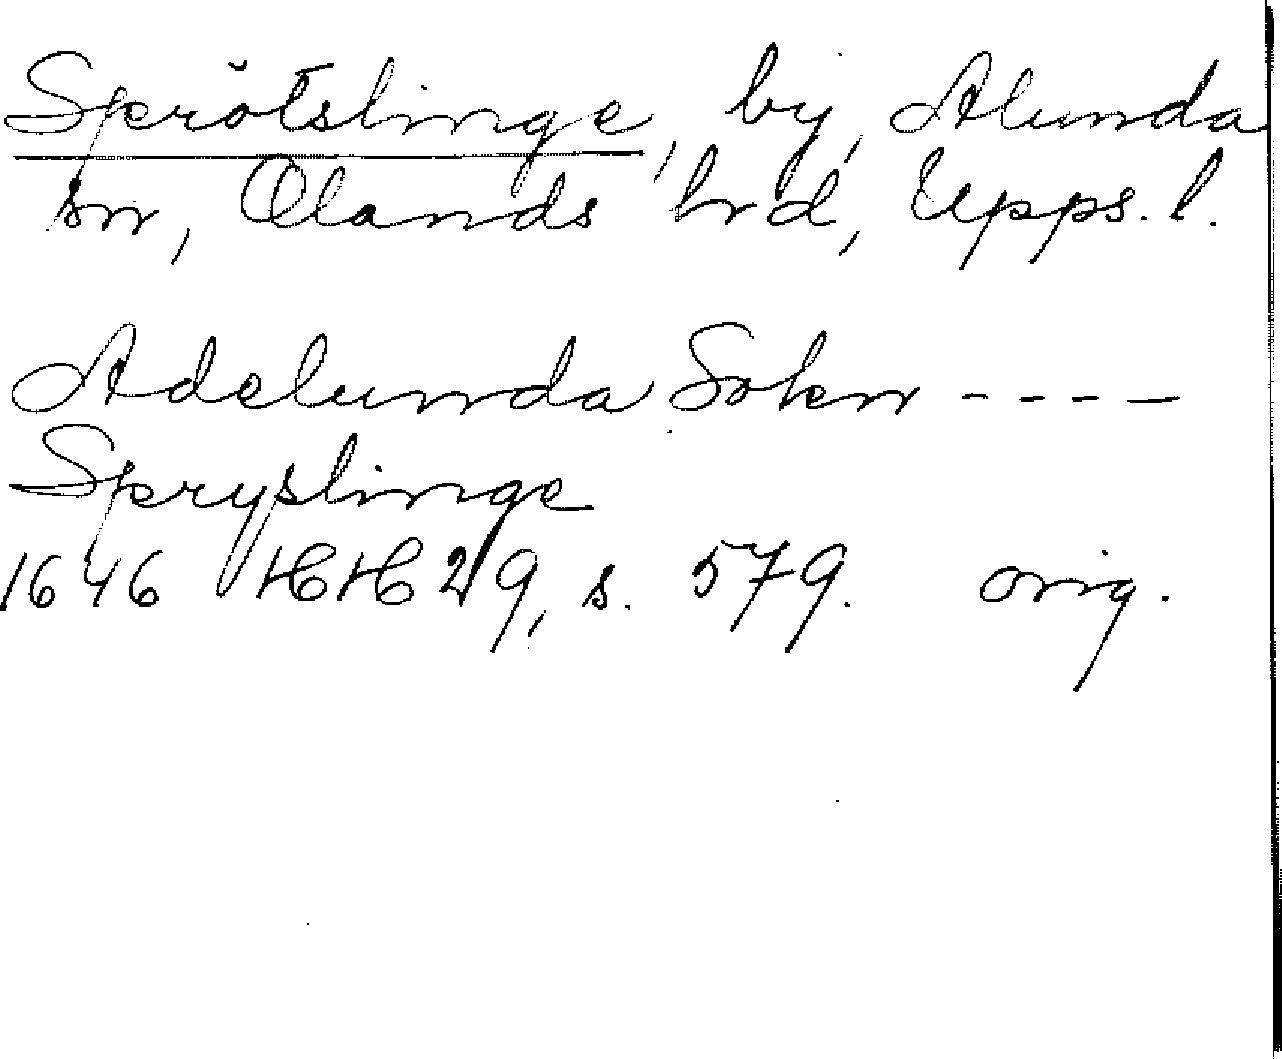 Sprötslinge, by, Alunda
sn, Olands hrd, Upps. l.
Adelunda Sokn ----
Spryslinge
1646 HH 29, s. 579. orig.